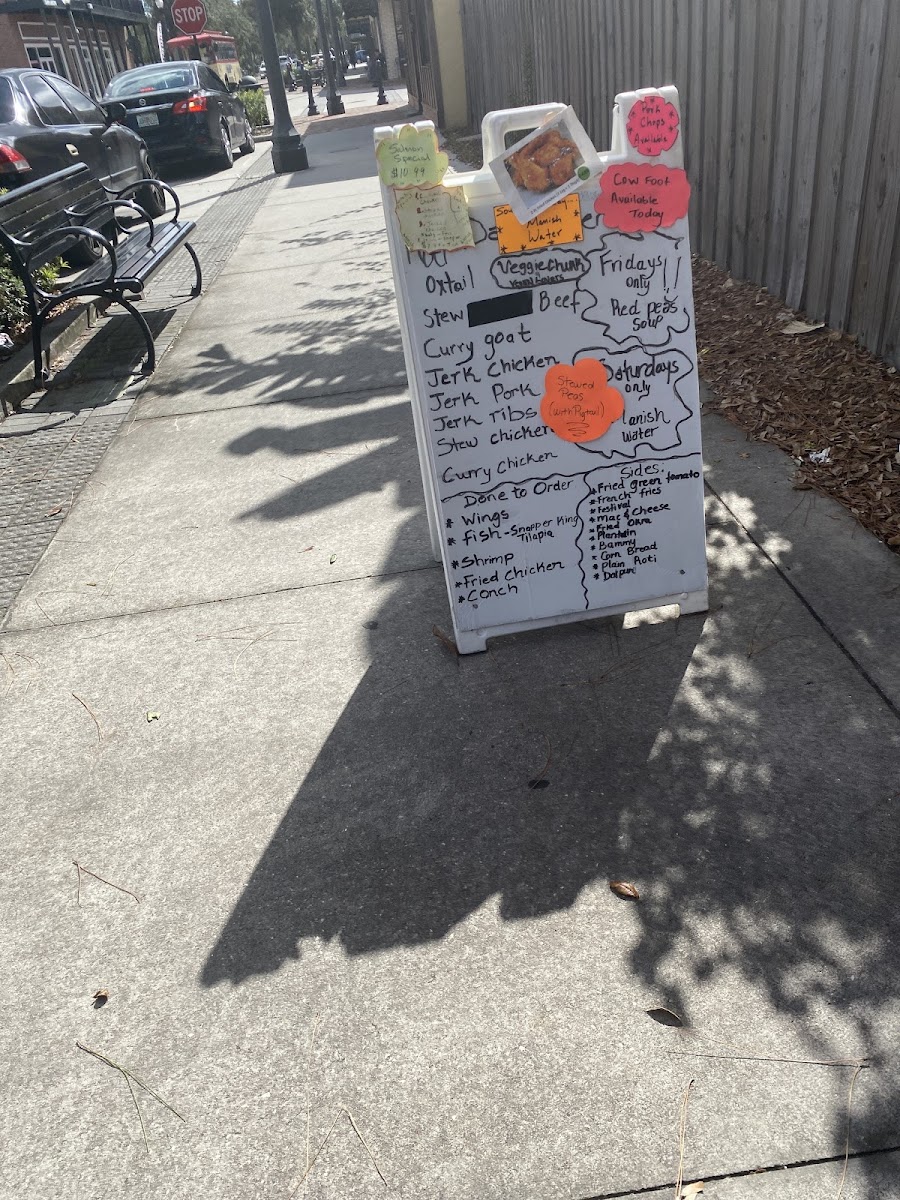 STOP
Salmon
Special
$10.99
Pork
Chops
Available
Cow Foot
Available
Today
Manish
Water
Oxtail
Stew Beef
Curry goat
Jerk chicken
Jerk Pork
Jerk ribs
Stew chicken
Curry chicken
Veggie chunk
Fridays
only
Red peas
Soup
Stewed
Peas
(with Pigtail)
Saturdays
only
Manish
Water
Done to Order
* Wings
* fish - Snapper King
Tilapia
* Shrimp
* Fried Chicken
* Conch
Sides:
* Fried green tomato
* French fries
* Festival
* Mac & Cheese
* Fried Okra
* Plantain
* Bammy
* Corn Bread
* Plain Roti
* Dalpuri